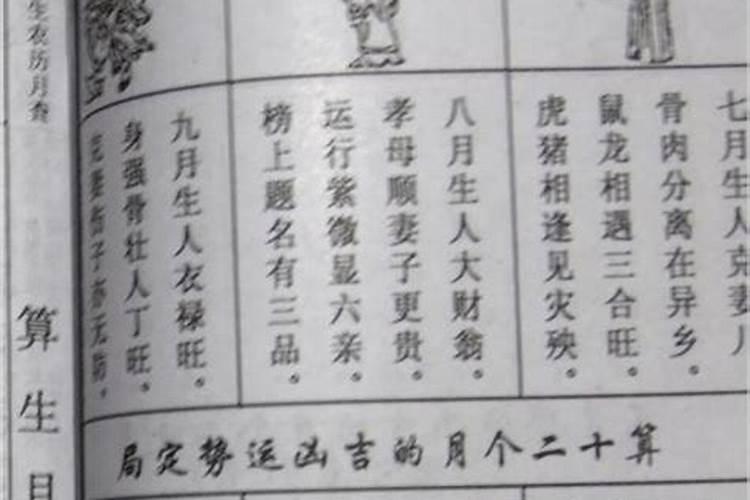 七月生人克妻儿
骨肉分离在异乡。
鼠龙相遇三合旺。
虎猪相逢见灾殃。
八月生人大财翁。
孝母顺妻子更贵。
运行紫微显六亲。
榜上题名有三品。
九月生人衣禄旺。
身强骨壮人丁旺。
克妻伤子亦无防。
算十二个月的吉凶运势定局
生农历月查
算生日